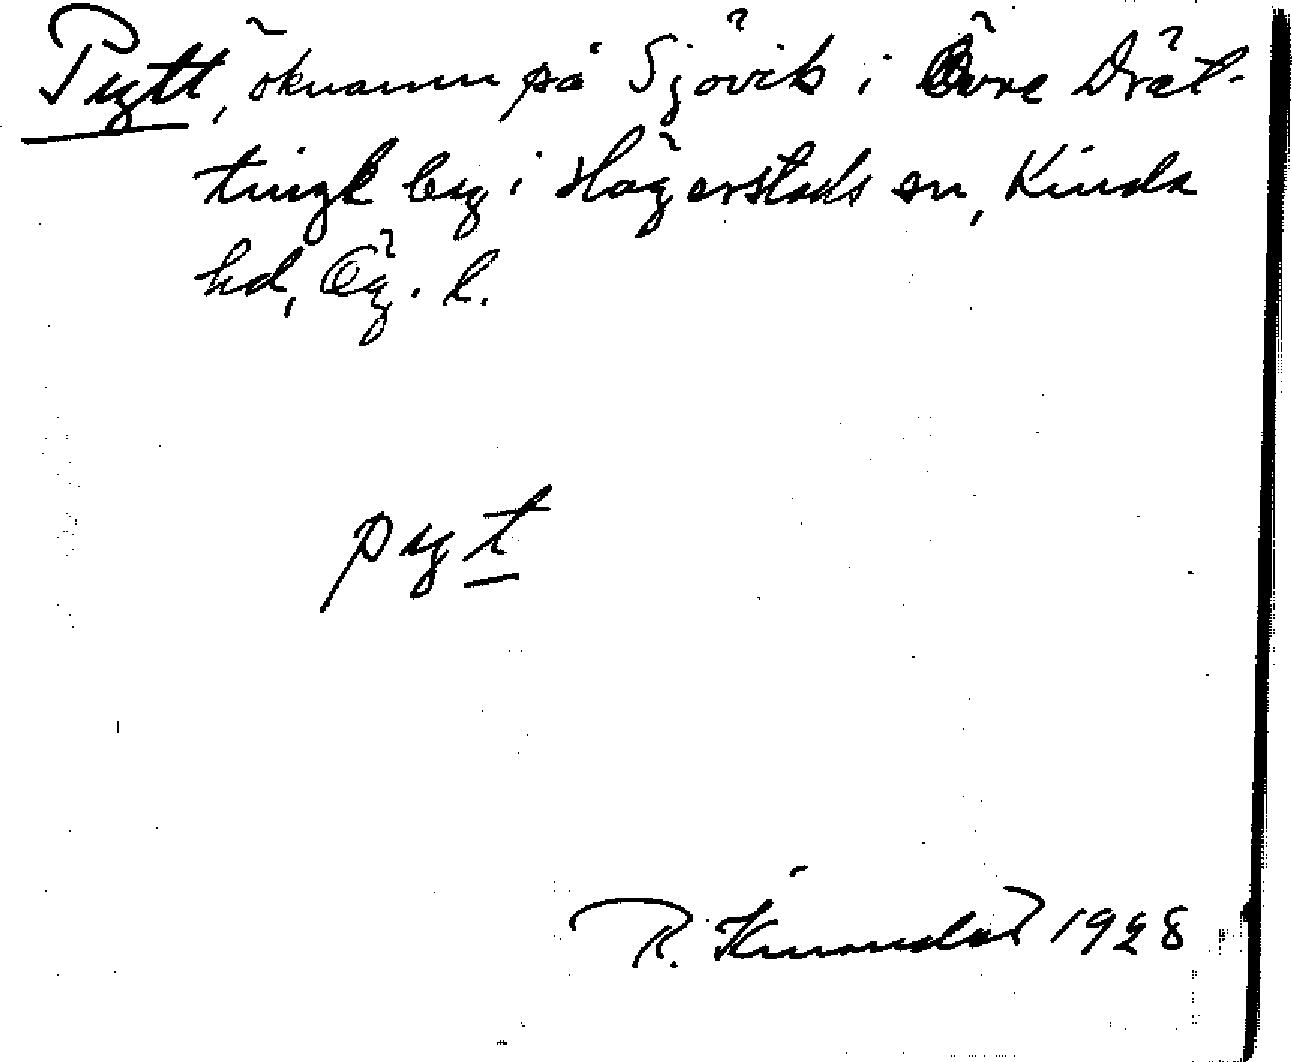 Pytt, öknamn på Sjövik i Övre Drät-
tingk by i Hägerstads sn, Kinda
hd, Ög. l.
pyt
R. 1928